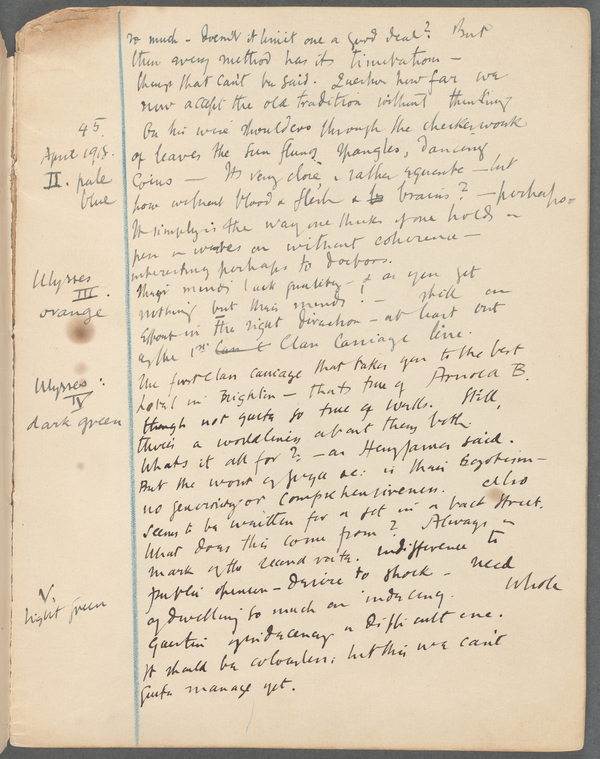 so much - Doesn't it limit one a good deal? But
then every method has its limitations -
things that can't be said. Question how far we
now accept the old tradition without thinking
45.
April 1918.
II. pale
blue
On his wise shoulders through the checkerwork
of leaves the sun flung spangles, dancing
coins - Its very close & rather exquisite - but
how without blood & flesh & brains? - perhaps
It simply is the way one thinks if one holds a
pen & writes on without coherence -
interesting perhaps to doctors.
Ulysses
III.
orange
Their minds lack quality - & as you get
nothing but their minds! - still an
effort in the right direction - at least out
of the 1st Class Carriage line.
Ulysses:
IV
dark green
The first class carriage that takes you to the best
hotel in Brighton - thats true of Arnold B.
though not quite so true of Wells. Still,
there's a worldliness about them both.
Whats it all for? - as Henry James said.
But the worst of Joyce &c: is their Egotism -
no generosity or comprehensiveness. Also
seems to be written for a set in a back street.
What does this come from? Always a
mark of the second rate. indifference to
public opinion - desire to shock - need
of dwelling so much on indecency. Whole
V.
light green
question of indecency a difficult one.
It should be colourless; but this we can't
quite manage yet.